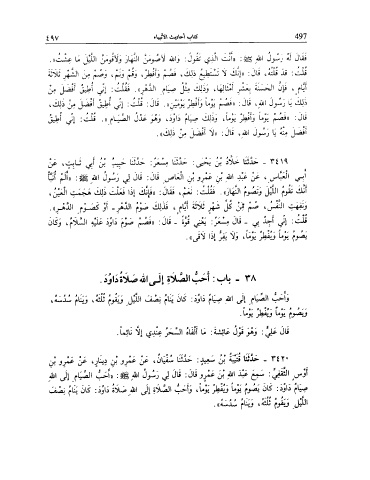 497 كتاب أحاديث الأنبياء ٤٩٧
فَقَالَ لَهُ رَسُولُ اللهِ ﷺ: «أَنْتَ الَّذِي تَقُولُ: وَاللهِ لَأَصُومَنَّ النَّهَارَ وَلَأَقُومَنَّ اللَّيْلَ مَا عِشْتُ».
قُلْتُ: قَدْ قُلْتُهُ. قَالَ: «إِنَّكَ لَا تَسْتَطِيعُ ذلِكَ، فَصُمْ وَأَفْطِرْ، وَقُمْ وَنَمْ، وَصُمْ مِنَ الشَّهْرِ ثَلَاثَةَ
أَيَّامٍ، فَإِنَّ الْحَسَنَةَ بِعَشْرِ أَمْثَالِهَا، وَذلِكَ مِثْلُ صِيَامِ الدَّهْرِ». فَقُلْتُ: إِنِّي أُطِيقُ أَفْضَلَ مِنْ
ذلِكَ يَا رَسُولَ اللهِ، قَالَ: «فَصُمْ يَوْماً وَأَفْطِرْ يَوْمَيْنِ». قَالَ: قُلْتُ: إِنِّي أُطِيقُ أَفْضَلَ مِنْ ذلِكَ،
قَالَ: «فَصُمْ يَوْماً وَأَفْطِرْ يَوْماً، وَذلِكَ صِيَامُ دَاوُدَ، وَهُوَ عَدْلُ الصِّيَامِ». قُلْتُ: إِنِّي أُطِيقُ
أَفْضَلَ مِنْهُ يَا رَسُولَ اللهِ، قَالَ: «لَا أَفْضَلَ مِنْ ذلِكَ».
٣٤١٩ - حَدَّثَنَا خَلَّادُ بْنُ يَحْيَى: حَدَّثَنَا مِسْعَرٌ: حَدَّثَنَا حَبِيبُ بْنُ أَبِي ثَابِتٍ، عَنْ
أَبِي الْعَبَّاسِ، عَنْ عَبْدِ اللهِ بْنِ عَمْرِو بْنِ الْعَاصِ قَالَ: قَالَ لِي رَسُولُ اللهِ ﷺ: «أَلَمْ أُنَبَّأْ
أَنَّكَ تَقُومُ اللَّيْلَ وَتَصُومُ النَّهَارَ». فَقُلْتُ: نَعَمْ، فَقَالَ: «فَإِنَّكَ إِذَا فَعَلْتَ ذلِكَ هَجَمَتِ الْعَيْنُ،
وَنَفِهَتِ النَّفْسُ، صُمْ مِنْ كُلِّ شَهْرٍ ثَلَاثَةَ أَيَّامٍ، فَذلِكَ صَوْمُ الدَّهْرِ - أَوْ كَصَوْمِ الدَّهْرِ».
قُلْتُ: إِنِّي أَجِدُ بِي - قَالَ مِسْعَرٌ: يَعْنِي قُوَّةً - قَالَ: «فَصُمْ صَوْمَ دَاوُدَ عَلَيْهِ السَّلَامُ، وَكَانَ
يَصُومُ يَوْماً وَيُفْطِرُ يَوْماً، وَلَا يَفِرُّ إِذَا لَاقَى».
٣٨ - باب: أَحَبُّ الصَّلَاةِ إِلَى اللهِ صَلَاةُ دَاوُدَ.
وَأَحَبُّ الصِّيَامِ إِلَى اللهِ صِيَامُ دَاوُدَ: كَانَ يَنَامُ نِصْفَ اللَّيْلِ وَيَقُومُ ثُلُثَهُ، وَيَنَامُ سُدُسَهُ،
وَيَصُومُ يَوْماً وَيُفْطِرُ يَوْماً.
قَالَ عَلِيٌّ: وَهُوَ قَوْلُ عَائِشَةَ: مَا أَلْفَاهُ السَّحَرُ عِنْدِي إِلَّا نَائِماً.
٣٤٢٠ - حَدَّثَنَا قُتَيْبَةُ بْنُ سَعِيدٍ: حَدَّثَنَا سُفْيَانُ، عَنْ عَمْرِو بْنِ دِينَارٍ، عَنْ عَمْرِو بْنِ
أَوْسٍ الثَّقَفِيِّ: سَمِعَ عَبْدَ اللهِ بْنَ عَمْرٍو قَالَ: قَالَ لِي رَسُولُ اللهِ ﷺ: «أَحَبُّ الصِّيَامِ إِلَى اللهِ
صِيَامُ دَاوُدَ: كَانَ يَصُومُ يَوْماً وَيُفْطِرُ يَوْماً، وَأَحَبُّ الصَّلَاةِ إِلَى اللهِ صَلَاةُ دَاوُدَ: كَانَ يَنَامُ نِصْفَ
اللَّيْلِ وَيَقُومُ ثُلُثَهُ، وَيَنَامُ سُدُسَهُ».